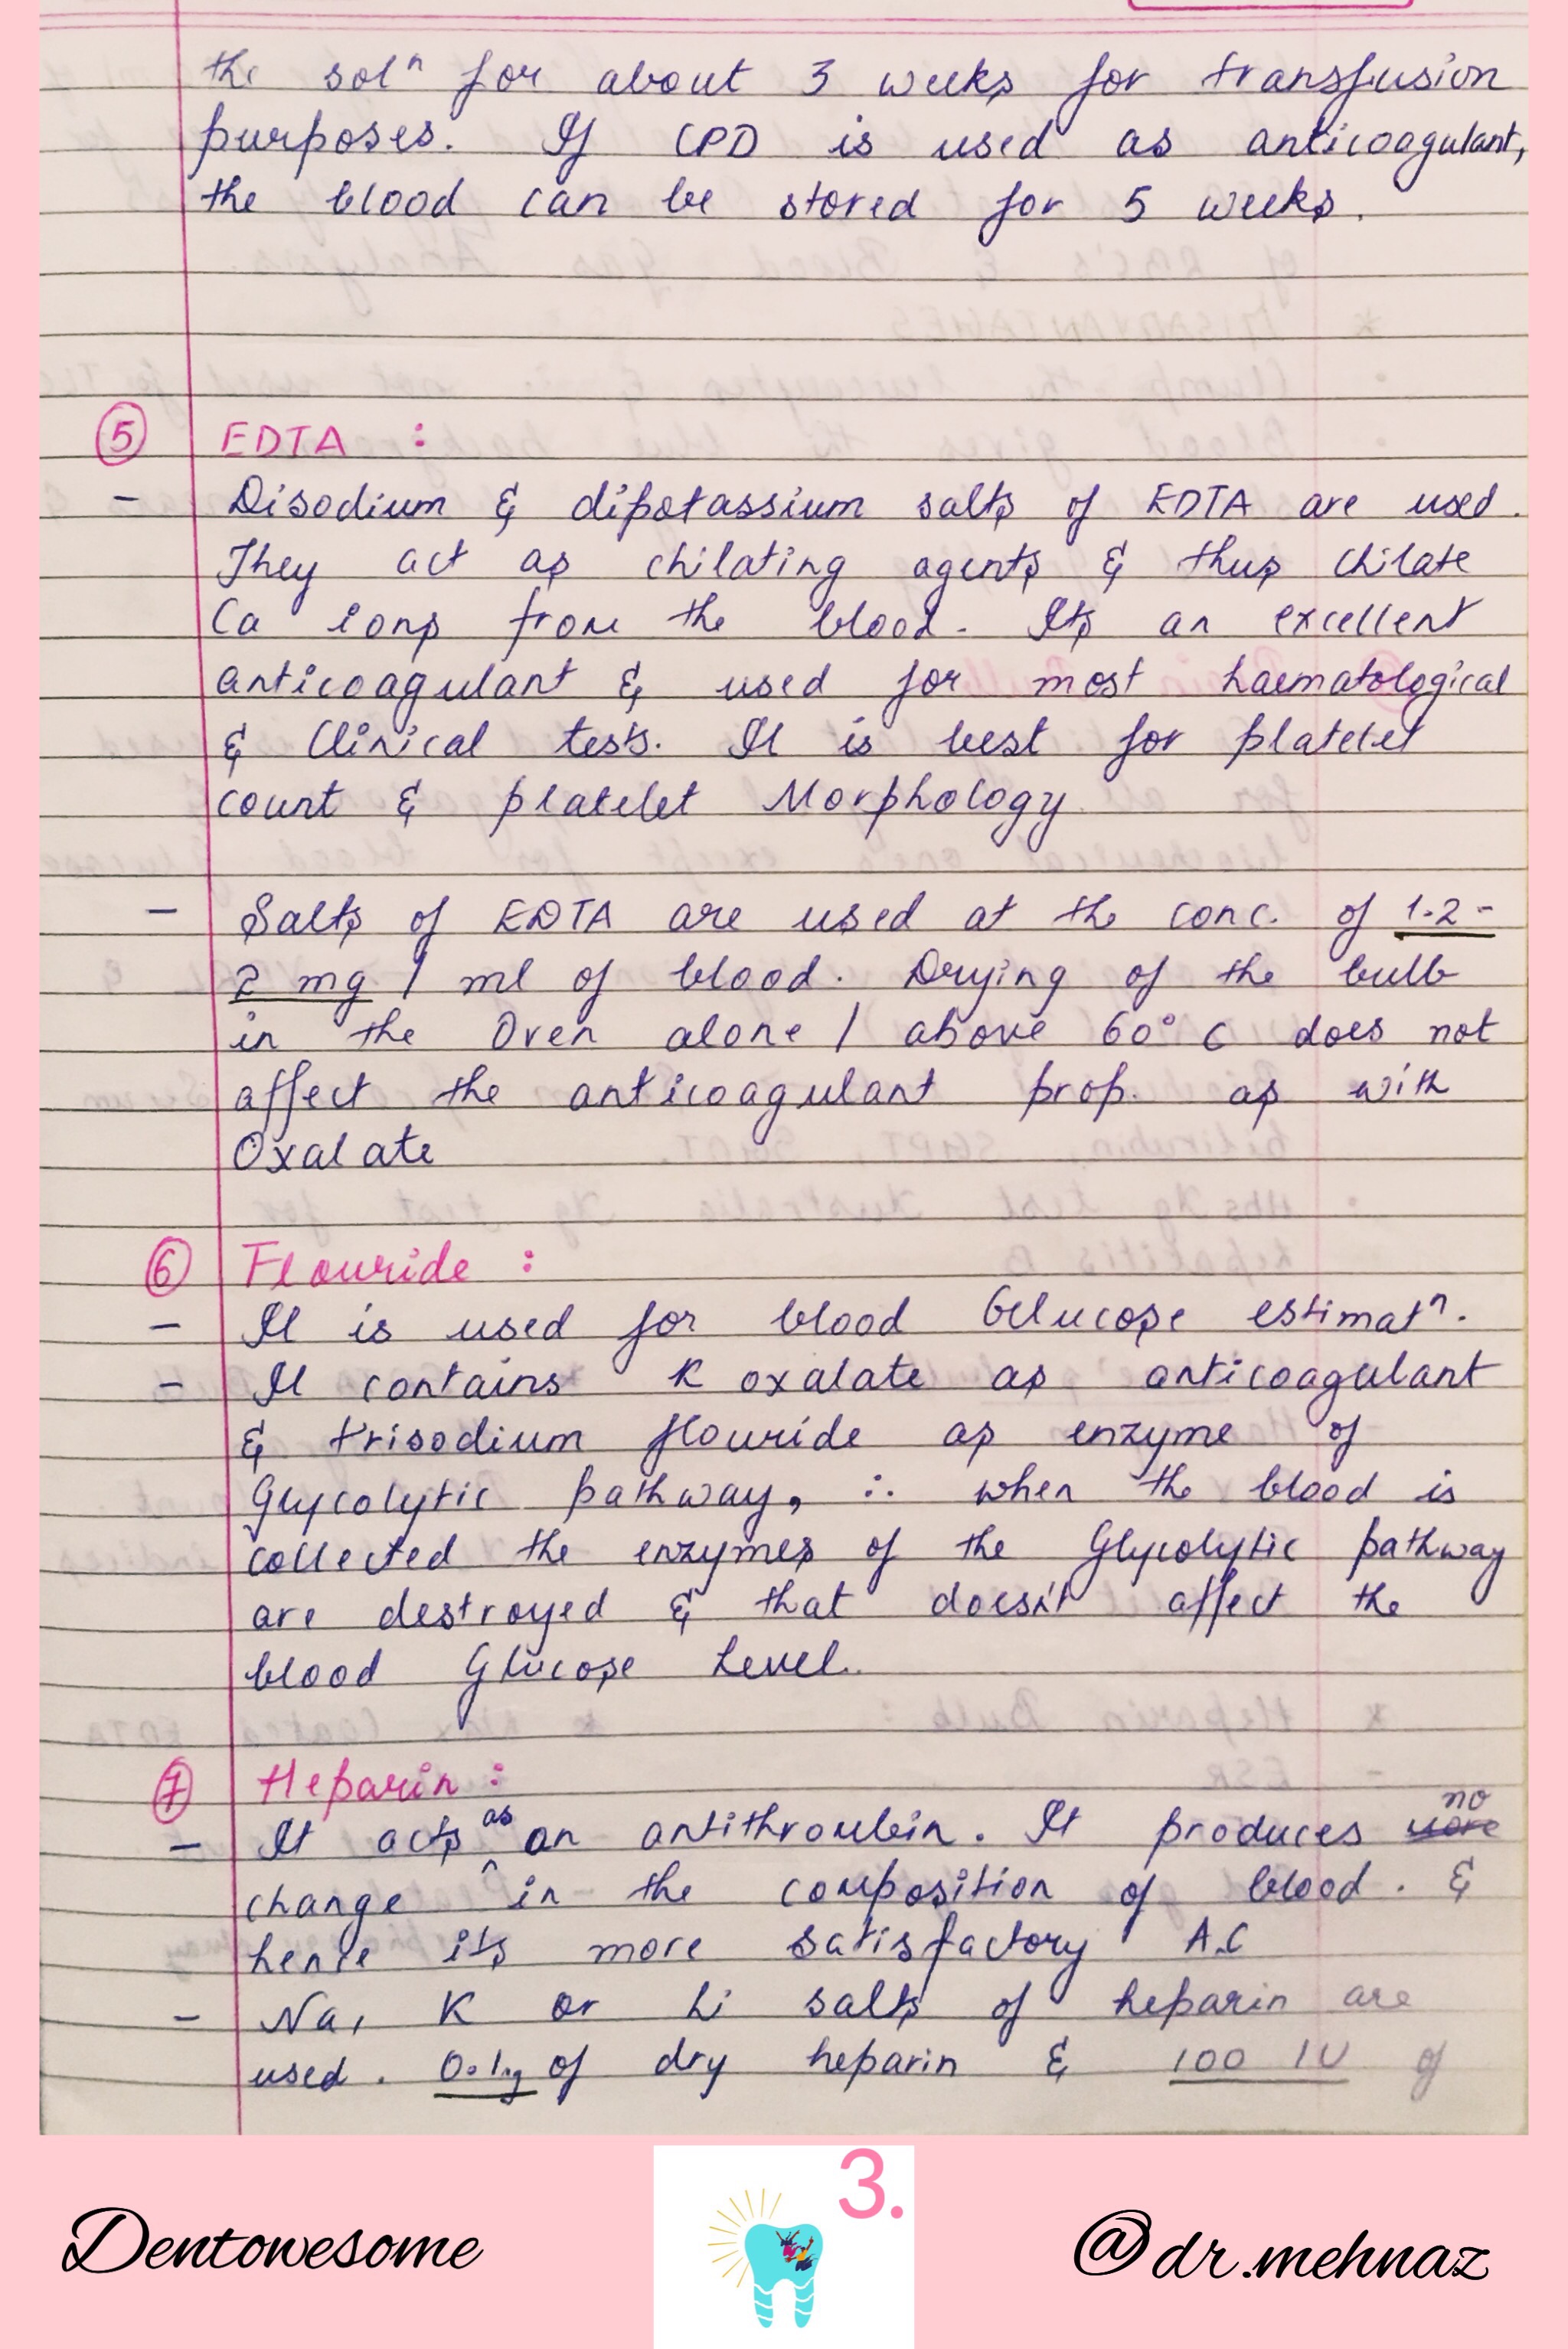 the solⁿ for about 3 weeks for transfusion
purposes. If CPD is used as anticoagulant,
the blood can be stored for 5 weeks.
⑤ EDTA :
- Disodium & dipotassium salts of EDTA are used.
They act as chilating agents & thus chilate
Ca ions from the blood. Its an excellent
anticoagulant & used for most haematological
& Clinical tests. It is best for platelet
count & platelet Morphology
- Salts of EDTA are used at the conc. of 1.2-
2 mg / ml of blood. Drying of the bulb
in the Oven alone / above 60° C does not
affect the anticoagulant prop. as with
Oxalate
⑥ Flouride :
- It is used for blood Glucose estimatⁿ.
- It contains K oxalate as anticoagulant
& trisodium flouride as enzyme of
Glycolytic pathway, ∴ when the blood is
collected the enzymes of the Glycolytic pathway
are destroyed & that doesn't affect the
blood Glucose Level.
⑦ Heparin :
- It acts as an antithrombin. It produces no
change in the composition of blood. &
hence its more satisfactory A.C
- Na, K or Li salts of heparin are
used. 0.1mg of dry heparin & 100 IU of
Dentowesome 3. @dr.mehnaz